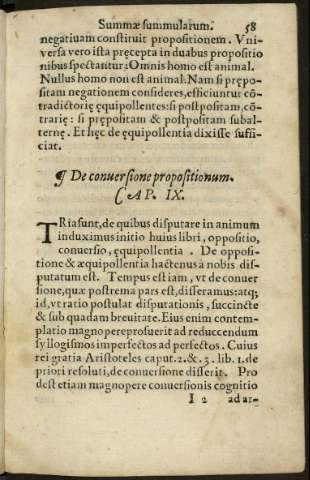 Summæ summularum. 58
negatiuam constituit propositionem. Vni-
uersa vero ista pręcepta in duabus propositio
nibus spectantur: Omnis homo est animal.
Nullus homo non est animal. Nam si prępo-
sitam negationem consideres, efficiuntur cõ-
tradictorię ęquipollentes: si postpositam, cõ-
trarię: si prępositam & postpositam subal-
ternę. Et hęc de ęquipollentia dixisse suffi-
ciat.
¶ De conuersione propositionum.
CAP. IX.
TRia sunt, de quibus disputare in animum
induximus initio huius libri, oppositio,
conuersio, ęquipollentia. De opposi-
tione & æquipollentia hactenus à nobis dis-
putatum est. Tempus est iam, vt de conuer-
sione, quæ postrema pars est, disseramus: atq;
id, vt ratio postulat disputationis, succincte
& sub quadam breuitate. Eius enim contem-
platio magnopere profuerit ad reducendum
syllogismos imperfectos ad perfectos. Cuius
rei gratia Aristoteles caput. 2. & . 3. lib. 1. de
priori resoluti, de conuersione disserit. Pro
dest etiam magnopere conuersionis cognitio
I 2 ad ar-